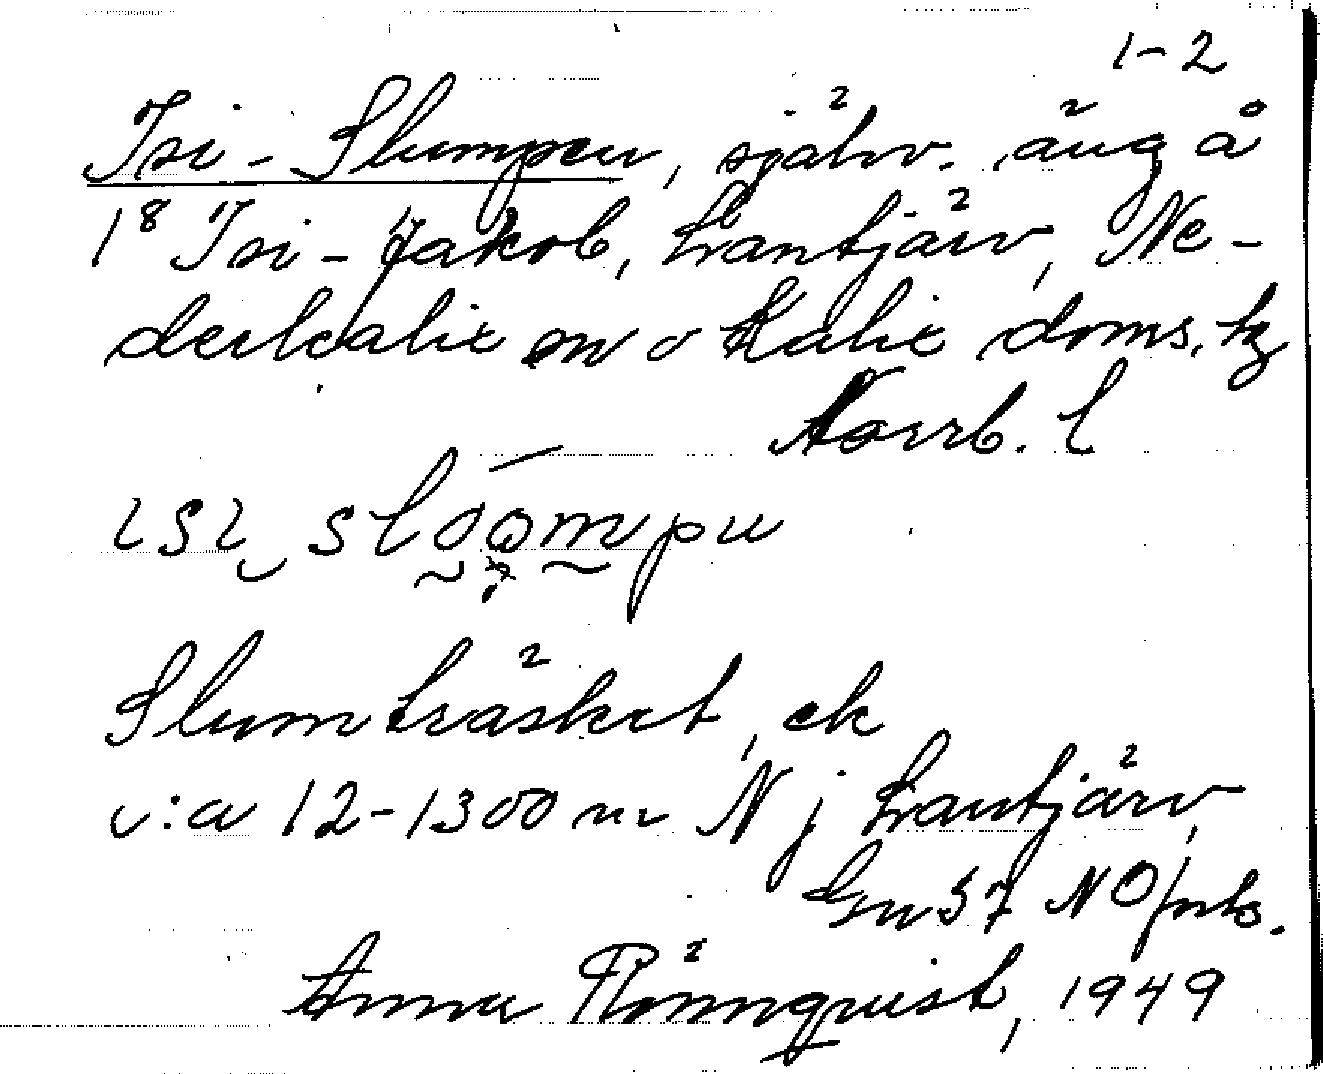 1-2
Isi-Slumpen, självv. äng å
1⁸ Isi-Jakob, Läntjärv, Ne-
derkalix sn o Kalix doms. tg
Norrb. l
ısı slo̰o̰m̰pu
Slumträsket, ek
c:a 12-1300 m N j Läntjärv,
Gn 37 NO/
Anna Rönnqvist, 1949